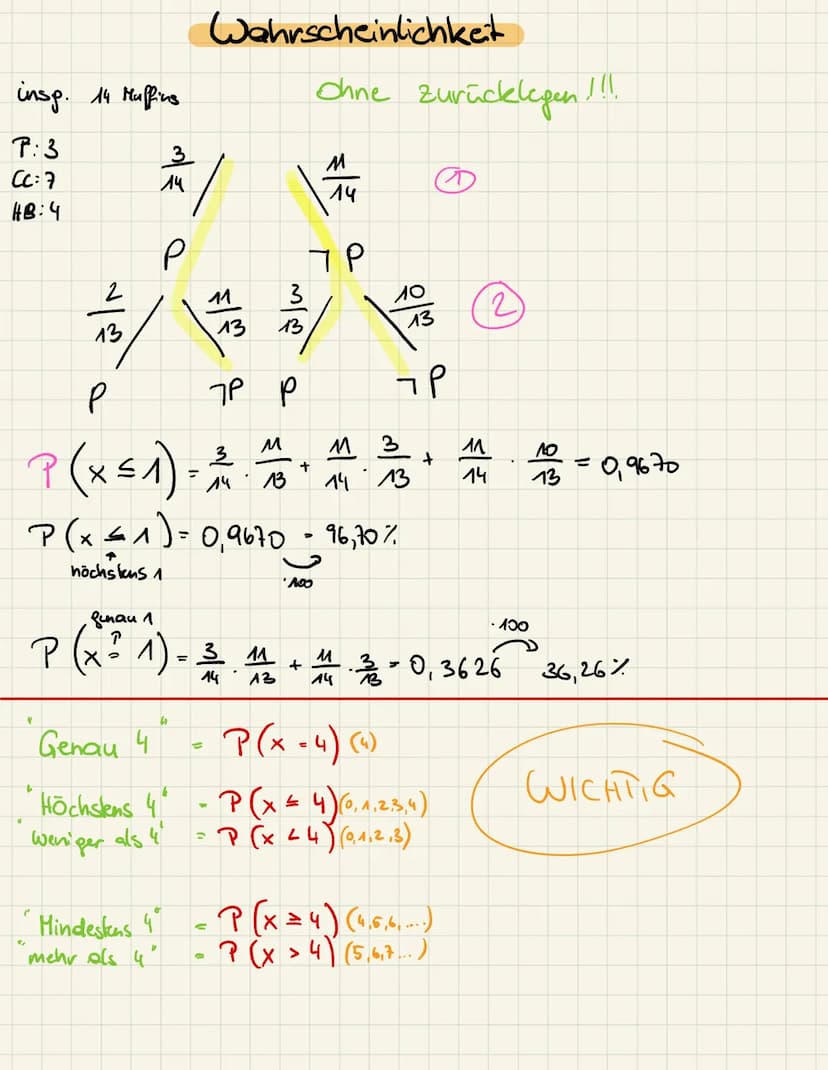 Wahrscheinlichkeit
insg. 14 Muffins
Ohne zurücklegen!!!
P: 3
CC: 7
HB: 4
3/14 11/14 ①
P ¬P
2/13 11/13 3/13 10/13 ②
P ¬P P ¬P
P(x ≤ 1) = 3/14 · 11/13 + 11/14 · 3/13 + 11/14 · 10/13 = 0,9670
P(x ≤ 1) = 0,9670 = 96,70%
höchstens 1
·100
genau 1
·100
P(x = 1) = 3/14 · 11/13 + 11/14 · 3/13 = 0,3626 36,26%
"Genau 4" = P(x = 4) (4)
WICHTIG
"Höchstens 4" = P(x ≤ 4) (0,1,2,3,4)
"weniger als 4" = P(x < 4) (0,1,2,3)
"Mindestens 4" = P(x ≥ 4) (4,5,6,....)
"mehr als 4" = P(x > 4) (5,6,7...)